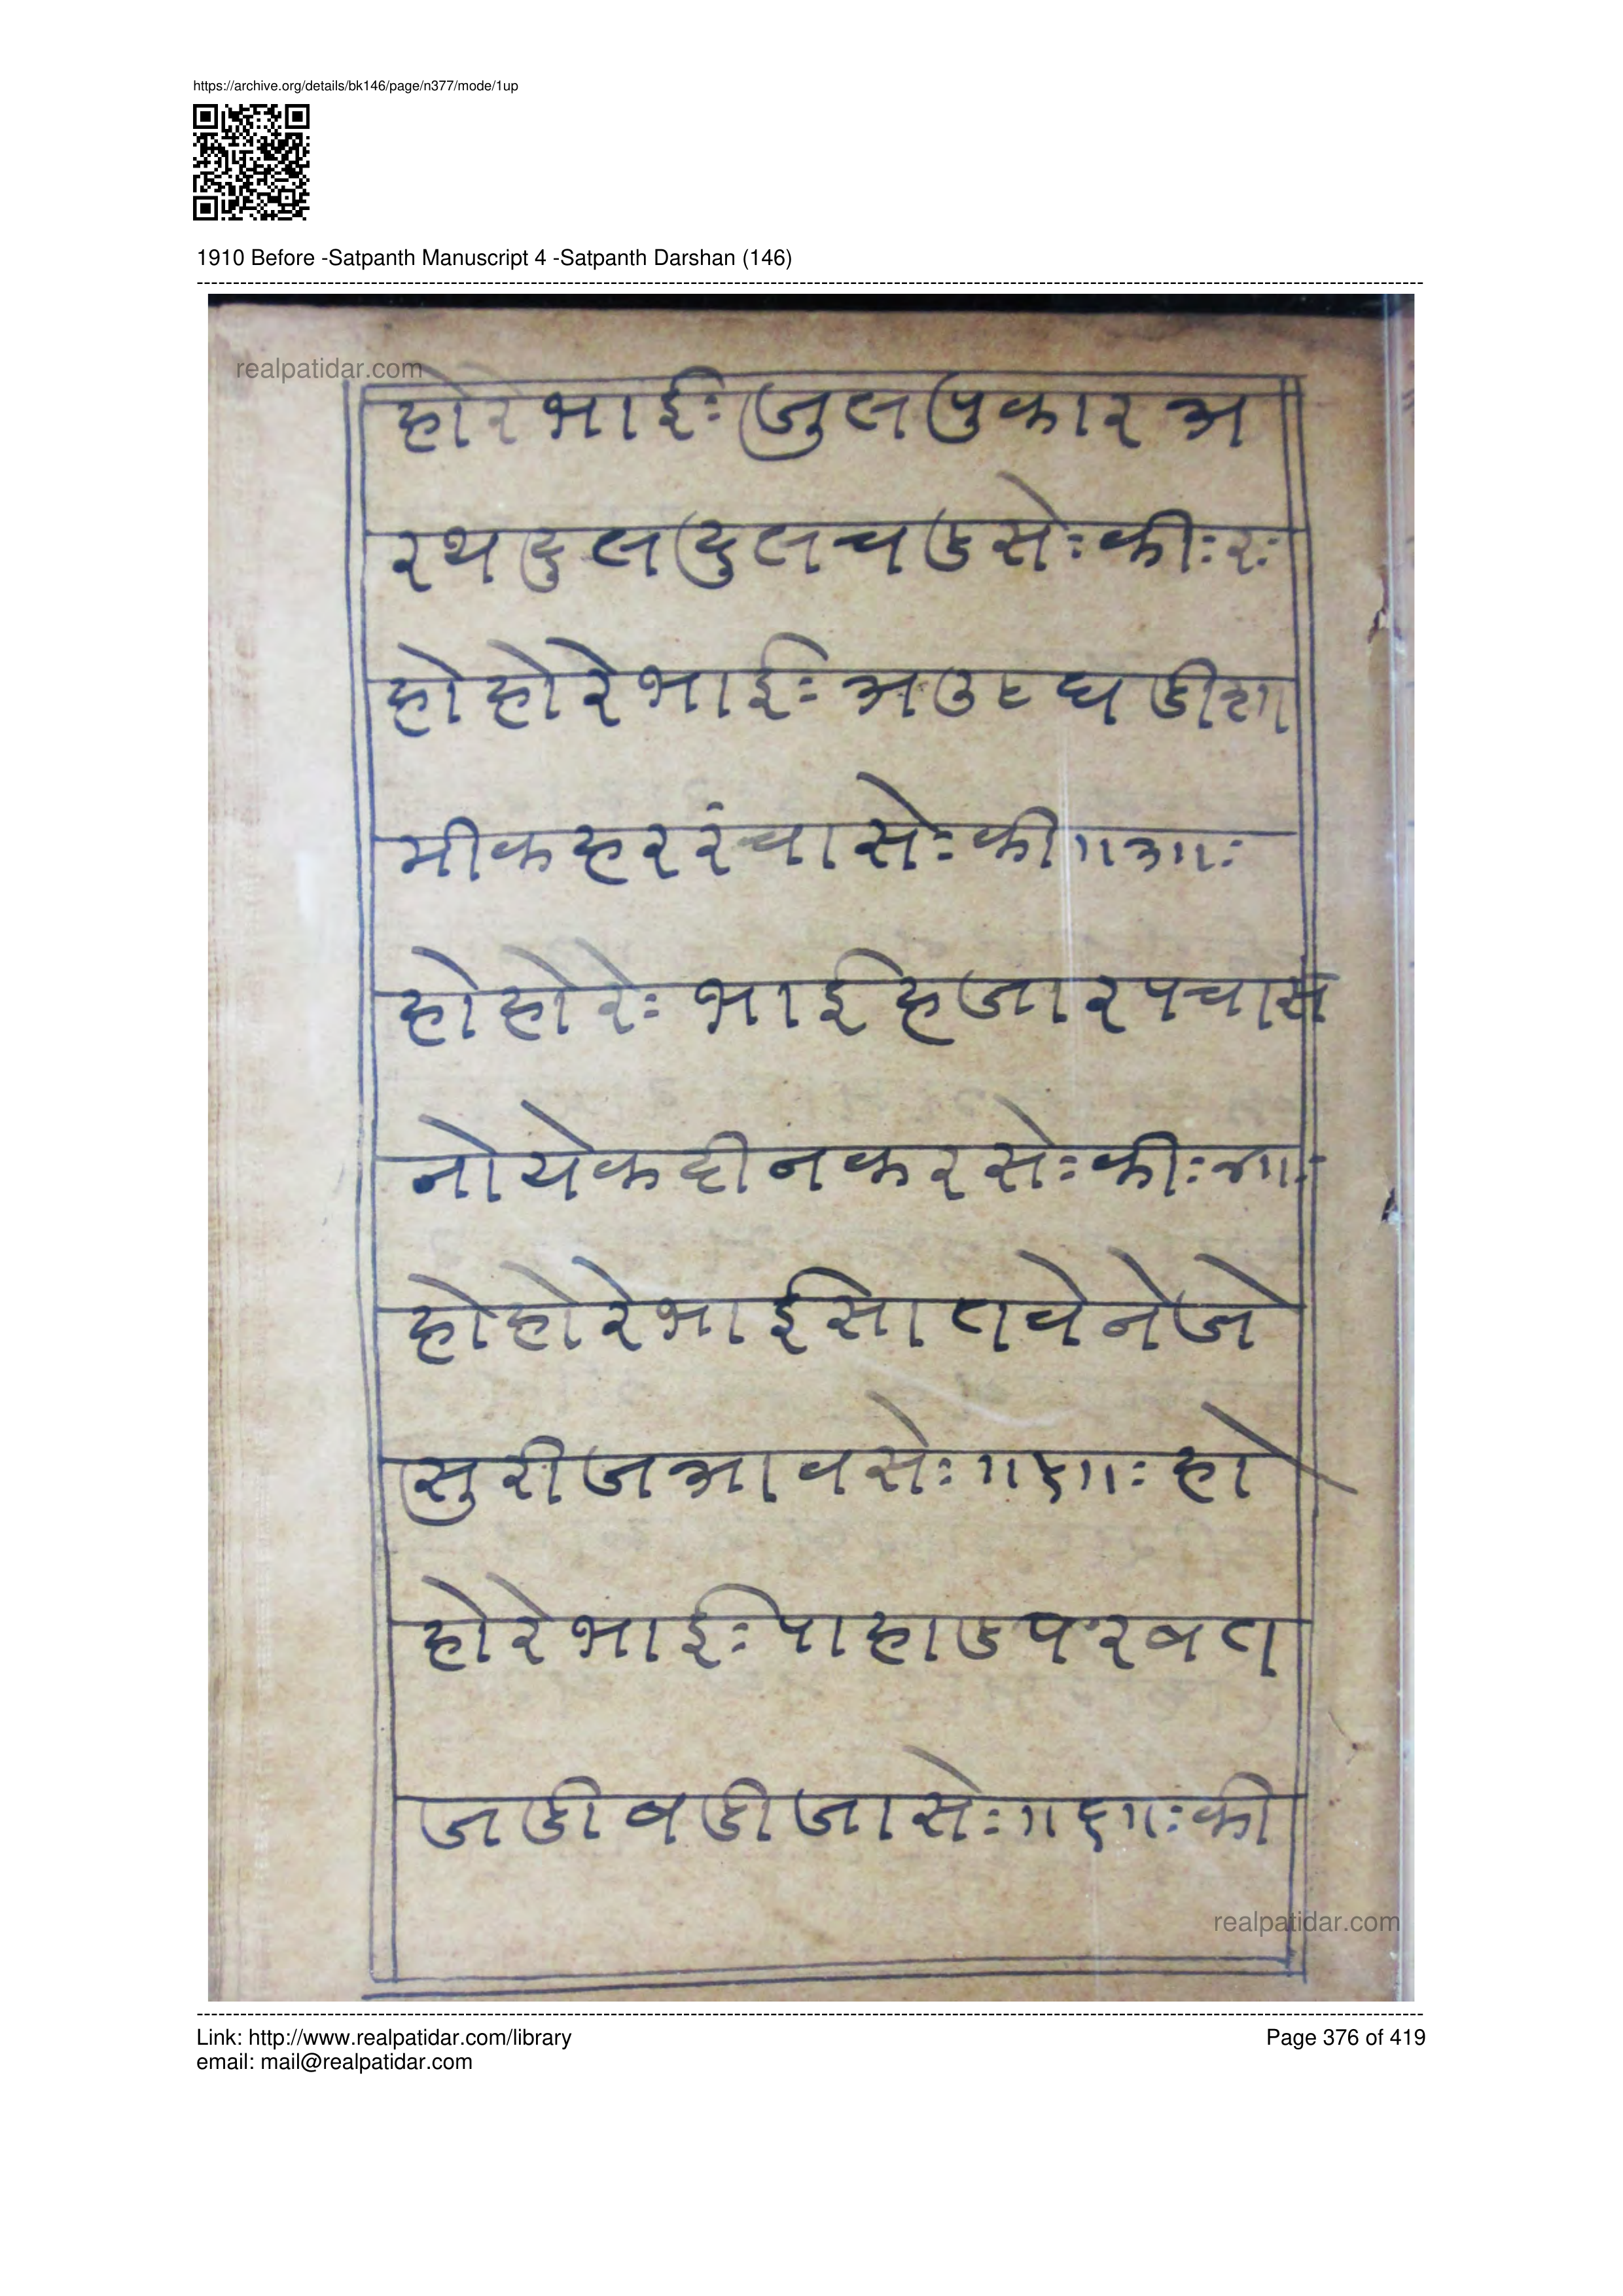 https://archive.org/details/bk146/page/n377/mode/1up
1910 Before -Satpanth Manuscript 4 -Satpanth Darshan (146)
realpatidar.com
होरे भाईः जुल पुकार अ
रथ दुल दुल चडसेः कीः रः
हो होरे भाईः अउठ घडी
मी कहर रंचासेः की ॥३॥ः
हो होरेः भाई हजार पचास
नो येक दीन करसेः कीः ॥४॥ः
हो होरे भाई सातवे नेजे
सुरीज आवसेः ॥५॥ः हो
होरे भाईः पाहाड परबत
जडी बडी जासेः ॥६॥ः की
realpatidar.com
Link: http://www.realpatidar.com/library
Page 376 of 419
email: mail@realpatidar.com